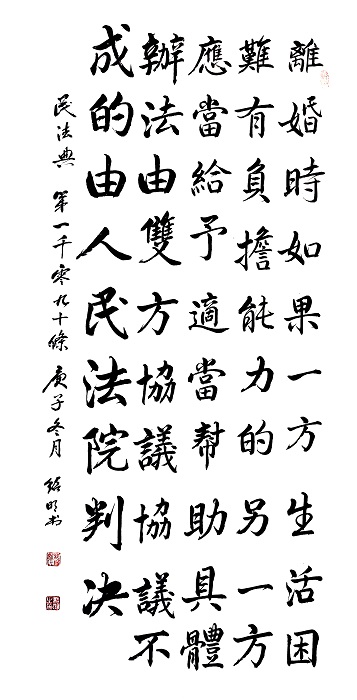 離婚時如果一方生活困
難有負擔能力的另一方
應當給予適當幫助具體
辦法由雙方協議協議不
成的由人民法院判决
民法典 第一千零九十條 庚子冬月 明书